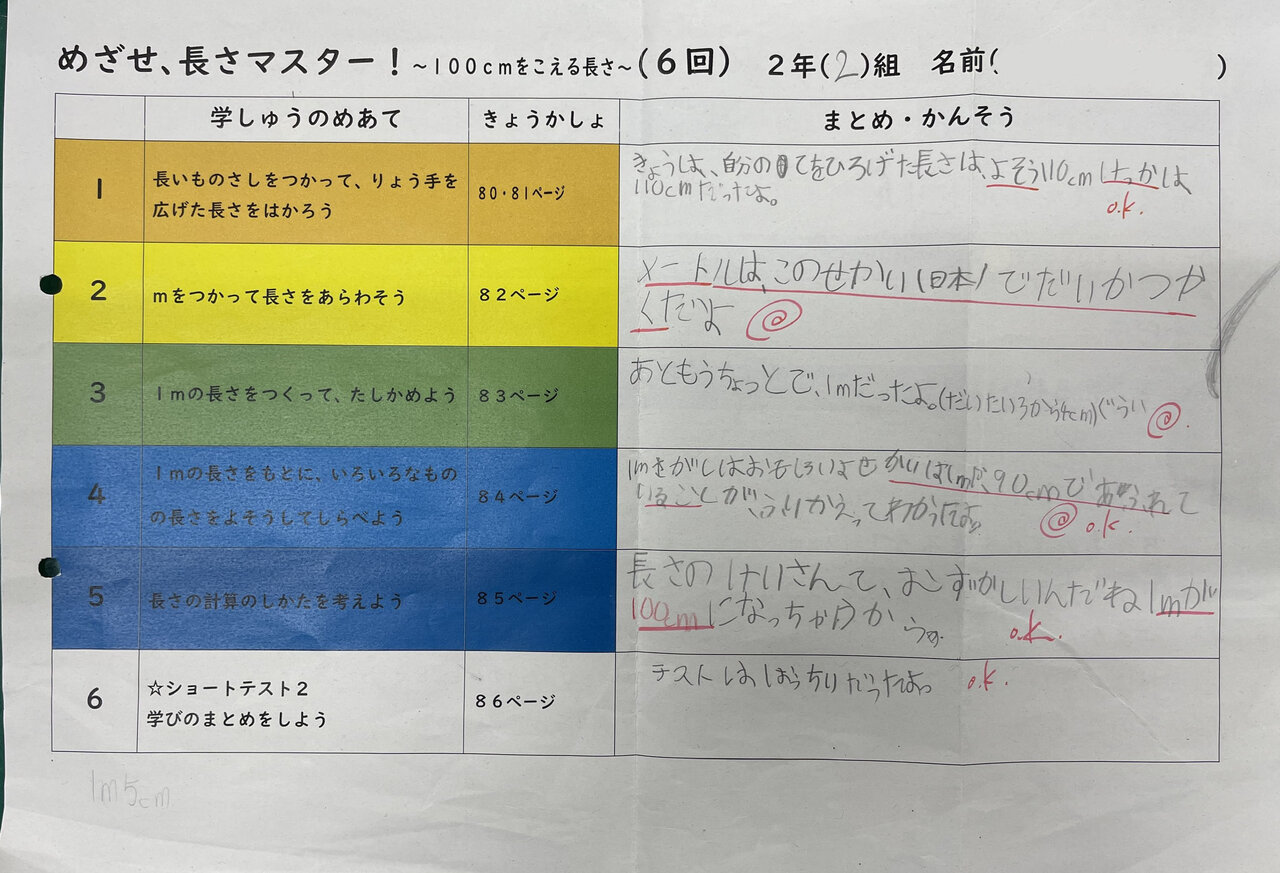 めざせ、長さマスター！～100cmをこえる長さ～(6回) 2年(2)組 名前( )
学しゅうのめあて きょうかしょ まとめ・かんそう
1 長いものさしをつかって、りょう手を
広げた長さをはかろう
80・81ページ
きょうは、自分のてをひろげた長さは、よそう110cmけっかは、
110cmだったよ。
o.k.
2 mをつかって長さをあらわそう 82ページ
メートルは、このせかい(日本)でだいかつか
くだよ
3 1mの長さをつくって、たしかめよう 83ページ
あともうちょっとで、1mだったよ。(だいたい3から4cm)ぐらい
4 1mの長さをもとに、いろいろなもの
の長さをよそうしてしらべよう
84ページ
1mさがしはおもしろいよせかいは1mが、90cmで
いることが、ふりかえってわかったよ。
o.k.
5 長さの計算のしかたを考えよう 85ページ
長さのけいさんて、むずかしいんだね1mが
100cmになっちゃうから
o.k.
6 ☆ショートテスト2
学びのまとめをしよう
86ページ
テストはばっちりだったよ。 o.k.
1m5cm